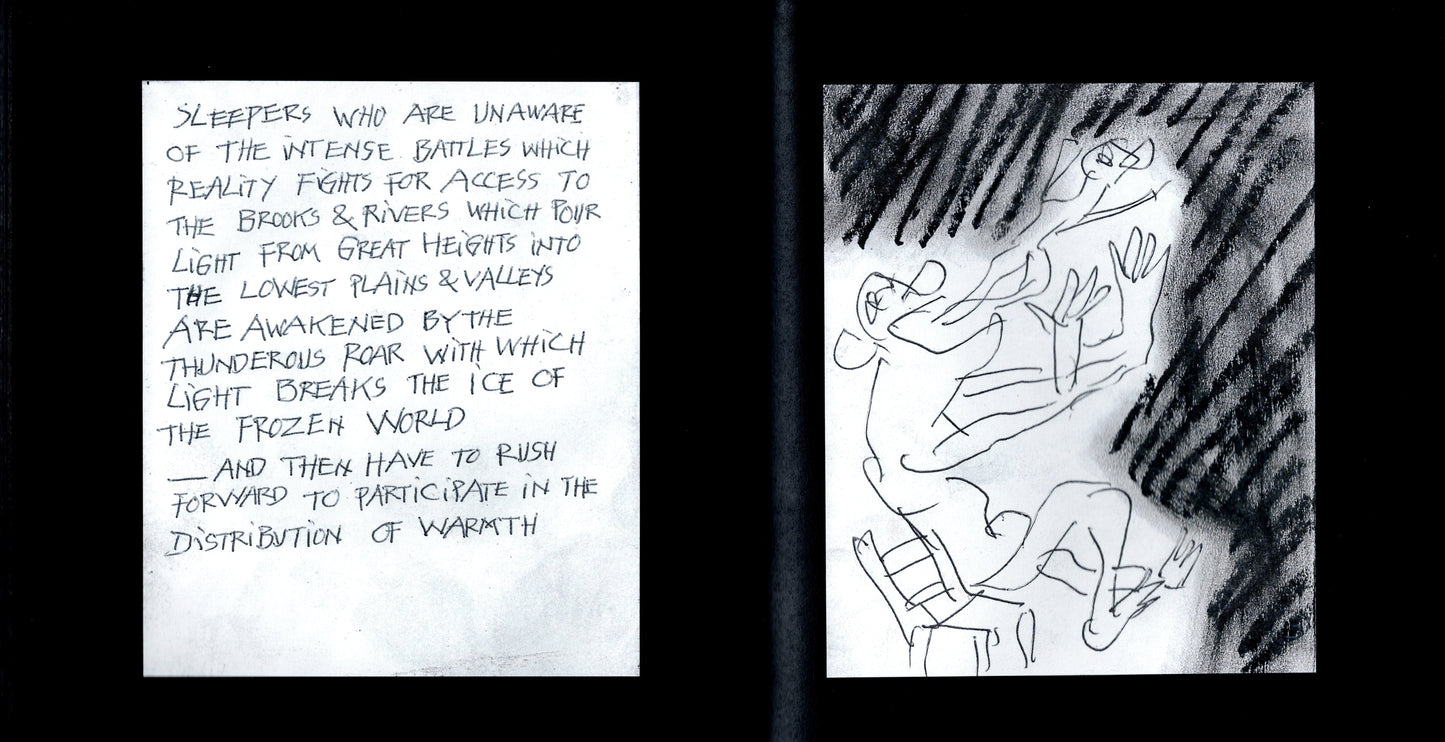 SLEEPERS WHO ARE UNAWARE
OF THE INTENSE BATTLES WHICH
REALITY FIGHTS FOR ACCESS TO
THE BROOKS & RIVERS WHICH POUR
LIGHT FROM GREAT HEIGHTS INTO
THE LOWEST PLAINS & VALLEYS
ARE AWAKENED BY THE
THUNDEROUS ROAR WITH WHICH
LIGHT BREAKS THE ICE OF
THE FROZEN WORLD
— AND THEN HAVE TO RUSH
FORWARD TO PARTICIPATE IN THE
DISTRIBUTION OF WARMTH